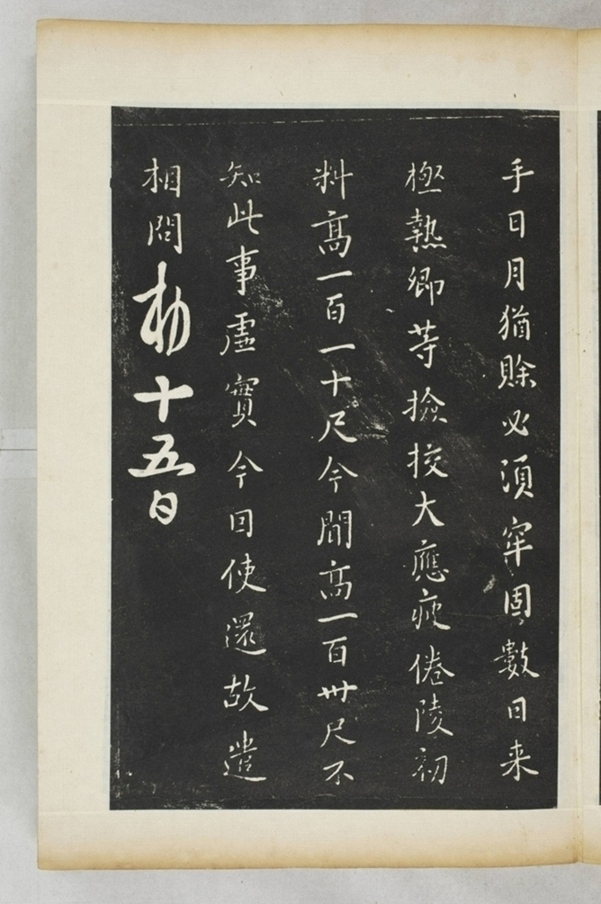 手日月猶賖必須窂固數日来
極熱卿䓁撿挍大應疲倦陵初
料髙一百一十尺今聞髙一百卅尺不
知此事虛實今囙使還故遣
相問勑十五日